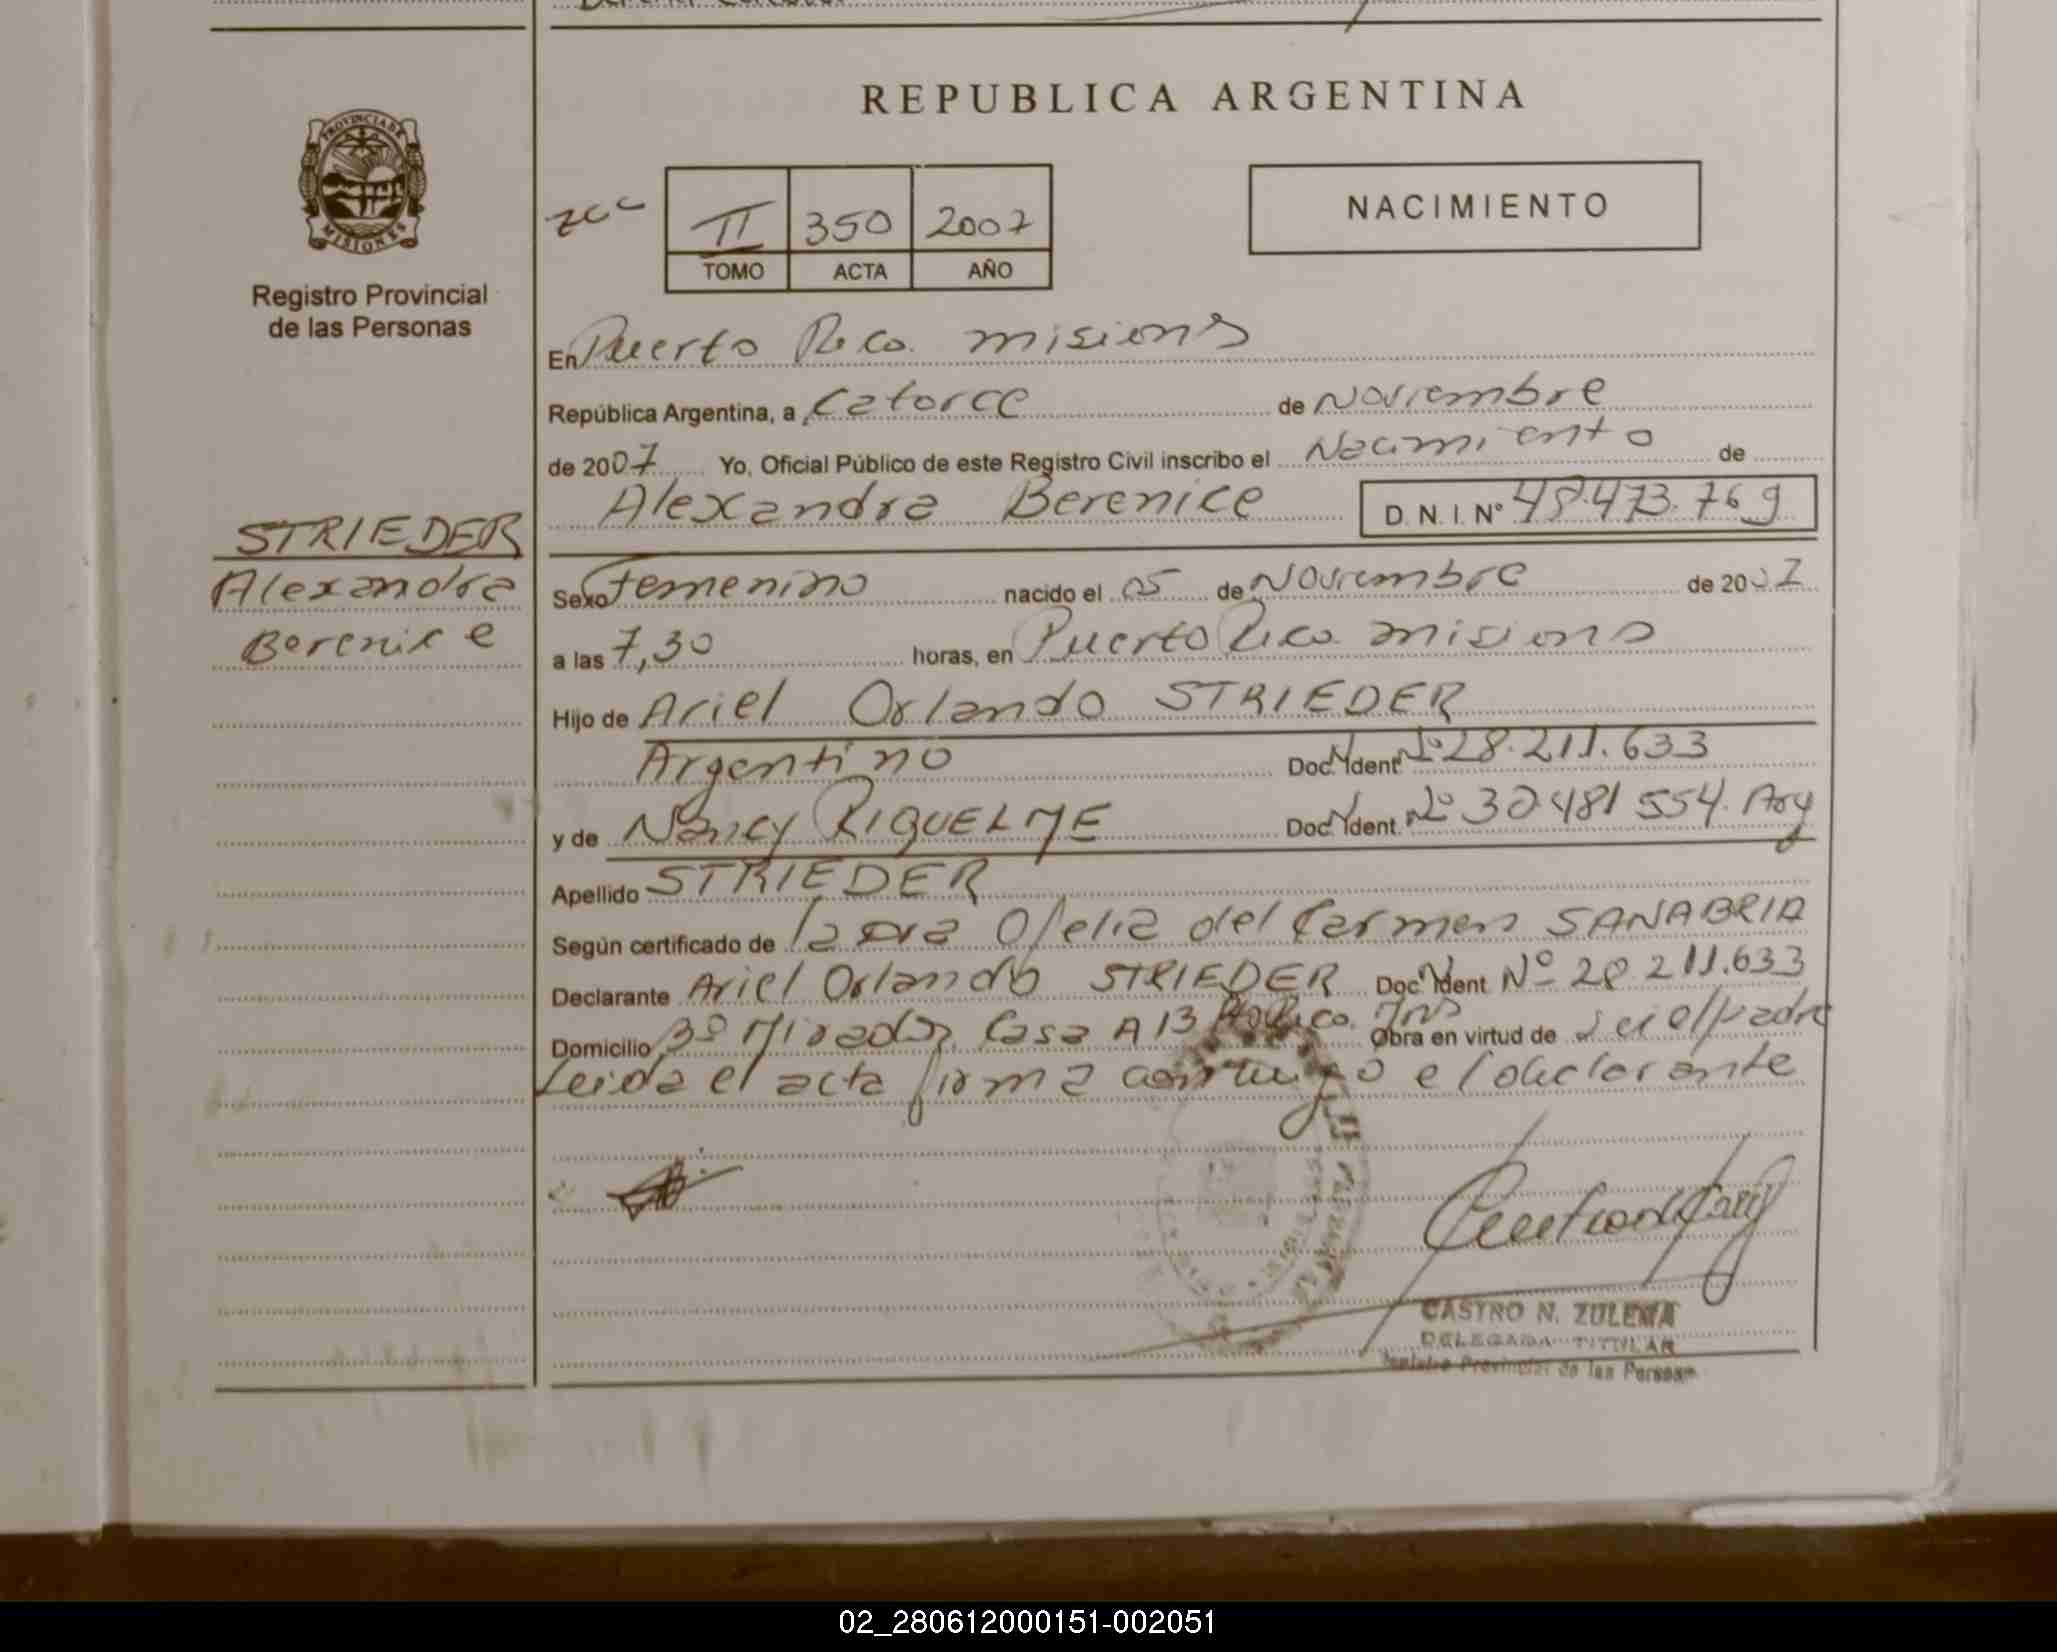 REPUBLICA ARGENTINA
PROVINCIA DE MISIONES
Registro Provincial
de las Personas
II 350 2007
TOMO ACTA AÑO
NACIMIENTO
En Puerto Rico. Misiones
República Argentina, a Catorce de Noviembre
de 2007 Yo, Oficial Público de este Registro Civil inscribo el Nacimiento de
Alexandra Berenice D.N.I. Nº 48.473.769
STRIEDER
Alexandra
Berenice
Sexo Femenino nacido el 05 de Noviembre de 2007
a las 7,30 horas, en Puerto Rico Misiones
Hijo de Ariel Orlando STRIEDER
Argentino Doc. Ident. Nº 28.211.633
y de Nancy RIQUELME Doc. Ident. Nº 30.481.554. Arg
Apellido STRIEDER
Según certificado de la Dra Ofelia del Carmen SANABRIA
Declarante Ariel Orlando STRIEDER Doc. Ident Nº 28.211.633
Domicilio 3º Mirador Casa A 13 Pto Rico. Mns Obra en virtud de ser el padre
Leida el acta firma conmigo el declarante
CASTRO N. ZULEMA
DELEGADA TITULAR
Registro Provincial de las Personas
02_280612000151-002051